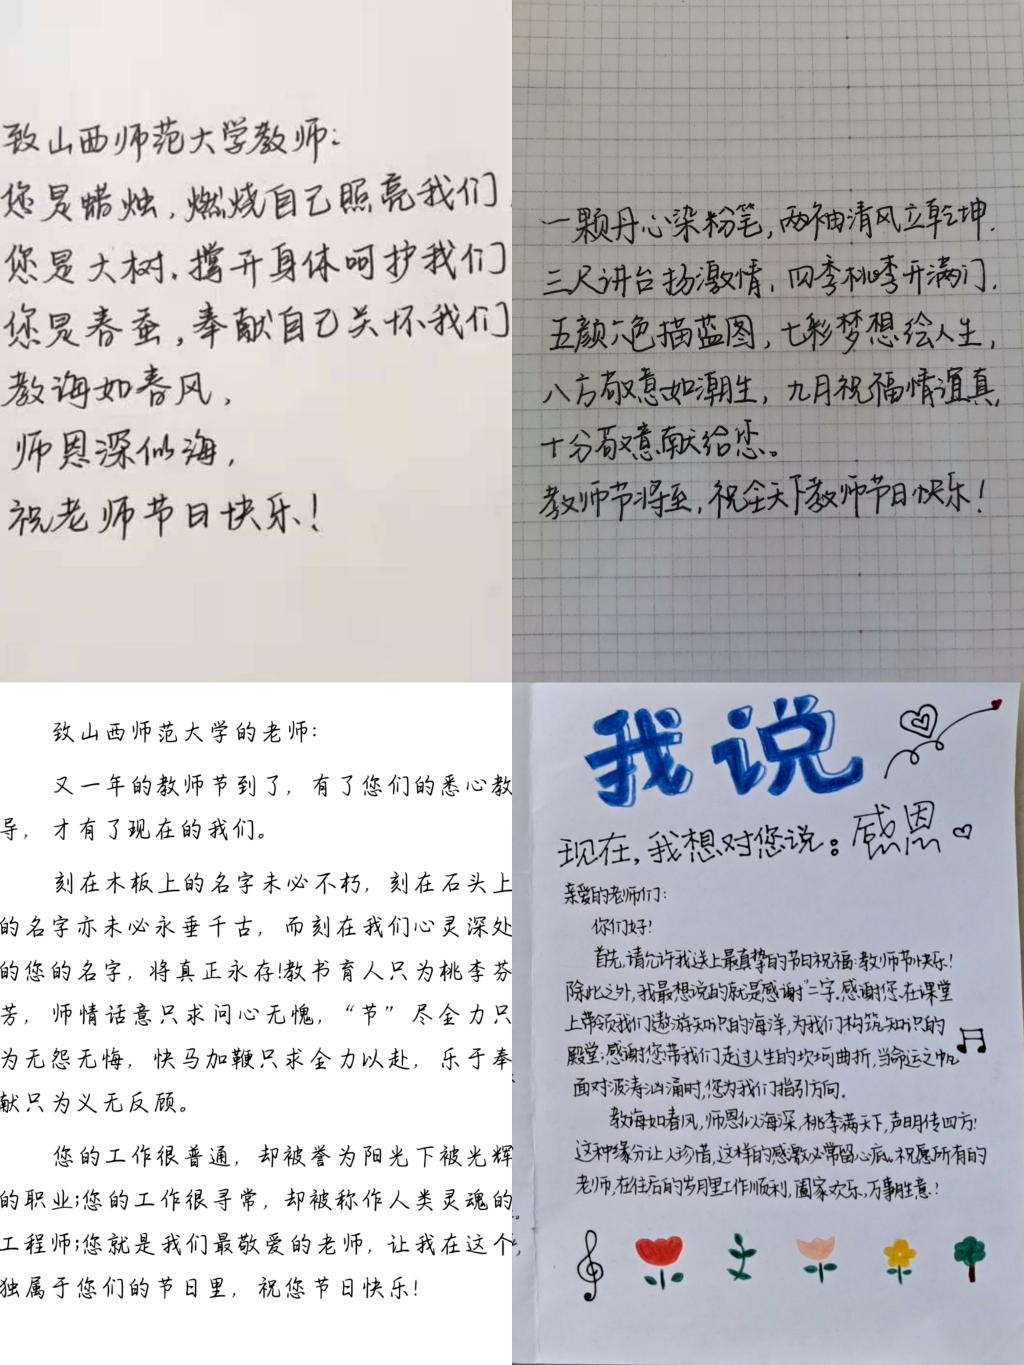 致山西师范大学教师:
您是蜡烛,燃烧自己照亮我们,
您是大树,撑开身体呵护我们
您是春蚕,奉献自己关怀我们
教诲如春风,
师恩深似海,
祝老师节日快乐!
一颗丹心染粉笔,两袖清风立乾坤.
三尺讲台扬激情,四季桃李开满门,
五颜六色描蓝图,七彩梦想绘人生,
八方敬意如潮生,九月祝福情谊真,
十分敬意献给您。
教师节将至,祝全天下教师节日快乐!
致山西师范大学的老师:
又一年的教师节到了,有了您们的悉心教
导,才有了现在的我们。
刻在木板上的名字未必不朽,刻在石头上
的名字亦未必永垂千古,而刻在我们心灵深处
的您的名字,将真正永存!教书育人只为桃李芬
芳,师情话意只求问心无愧,“节”尽全力只
为无怨无悔,快马加鞭只求全力以赴,乐于奉
献只为义无反顾。
您的工作很普通,却被誉为阳光下被光辉
的职业;您的工作很寻常,却被称作人类灵魂的
工程师;您就是我们最敬爱的老师,让我在这个,
独属于您们的节日里,祝您节日快乐!
我说
现在,我想对您说:感恩
亲爱的老师们:
你们好!
首先,请允许我送上最真挚的节日祝福:教师节快乐!
除此之外,我最想说的就是“感谢”二字.感谢您在课堂
上带领我们遨游知识的海洋,为我们构筑知识的
殿堂;感谢您带我们走过人生的坎坷曲折,当命运之帆
面对波涛汹涌时,您为我们指引方向。
教诲如春风,师恩似海深,桃李满天下,声明传四方!
这种缘分让人珍惜,这样的感激必常留心底。祝愿所有的
老师,在往后的岁月里工作顺利,阖家欢乐,万事胜意!